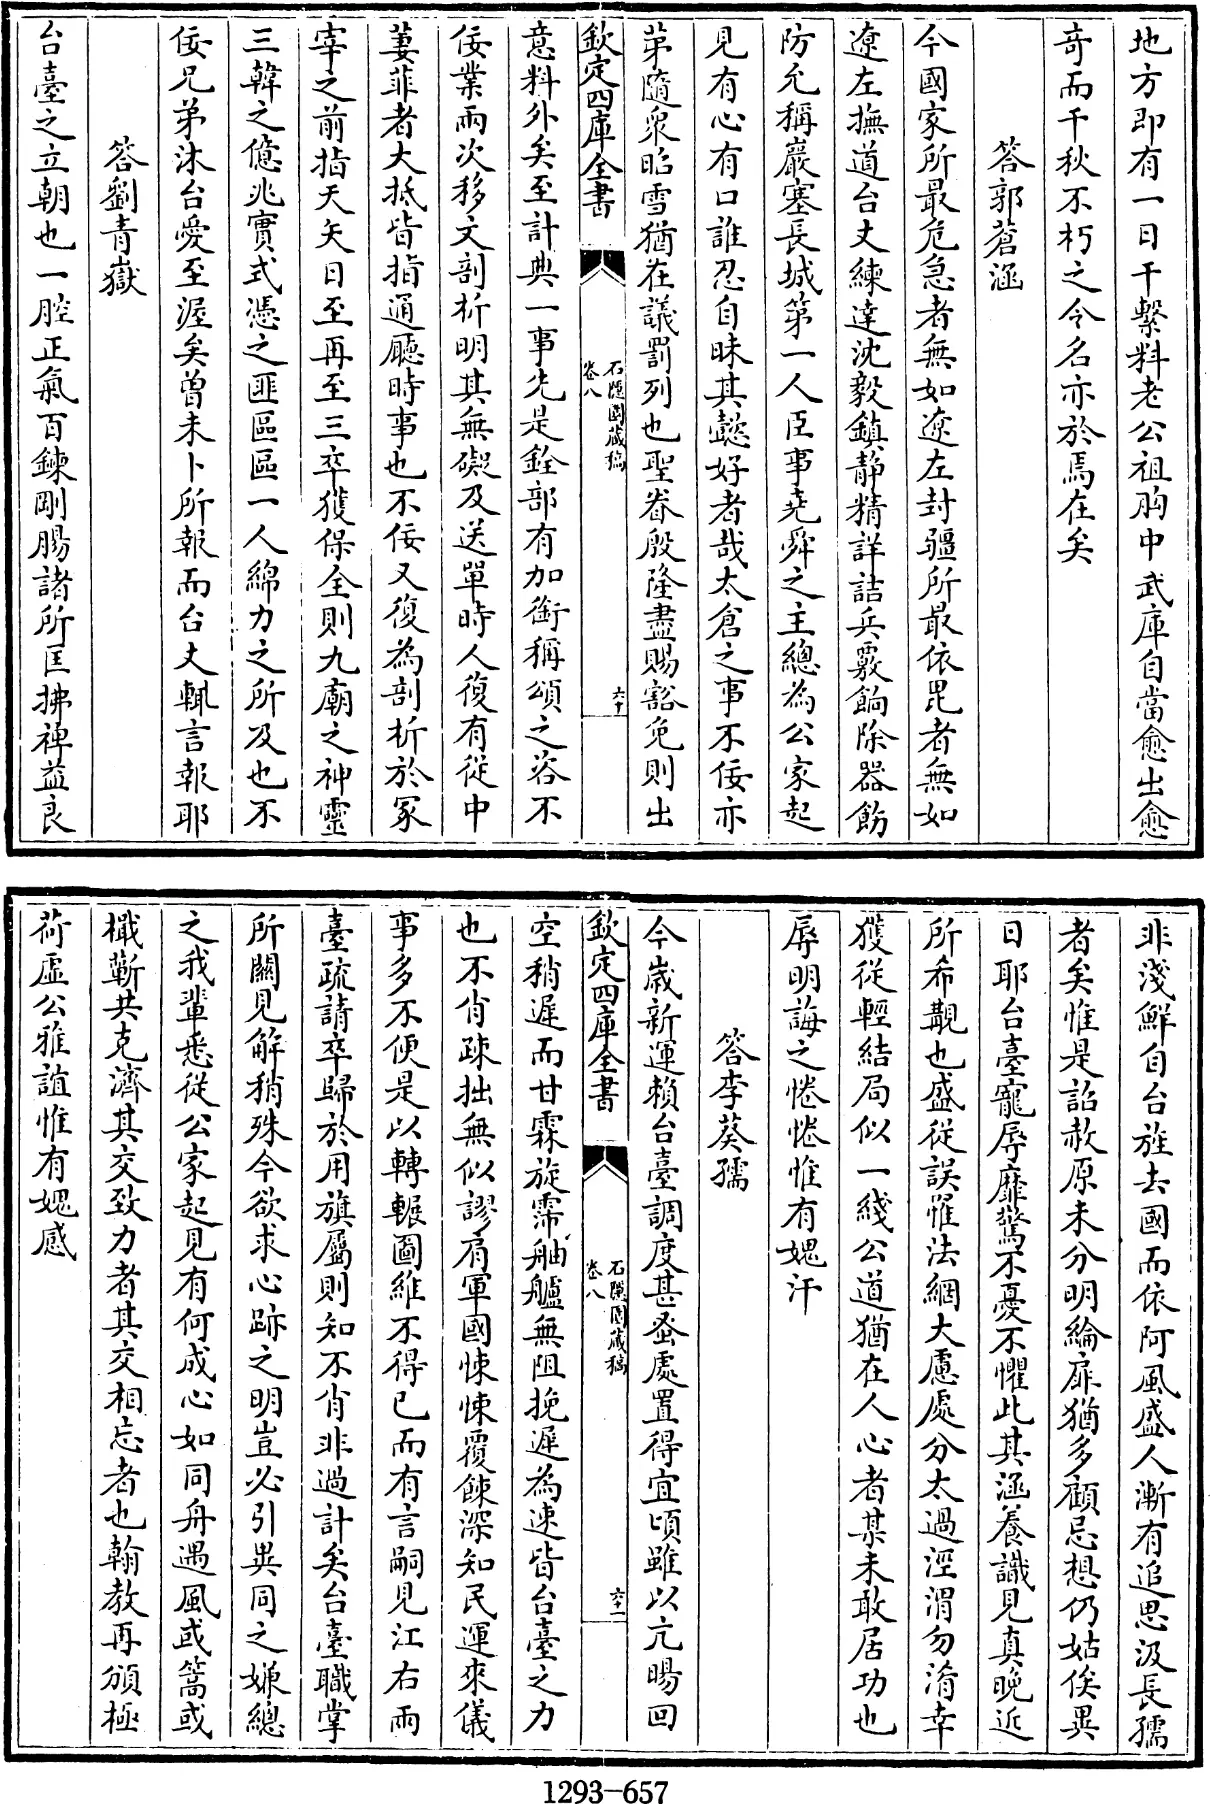 地方即有一日干繫料老公祖胸中武庫自當愈出愈
奇而千秋不朽之令名亦於焉在矣
答郭蒼涵
今國家所最危急者無如遼左封疆所最依毘者無如
遼左撫道台丈練達沈毅鎮静精詳詰兵覈餉除器飭
防允稱巖塞長城第一人臣事堯舜之主總為公家起
見有心有口誰忍自昧其懿好者哉太倉之事不佞亦
第隨衆昭雪猶在議罰列也聖眷殷隆盡賜豁免則出
欽定四庫全書
石隱園藏稿
卷八
六十
意料外矣至計典一事先是銓部有加銜稱頌之咨不
佞業兩次移文剖析明其無礙及送單時人復有從中
萋菲者大抵皆指通廳時事也不佞又復為剖析於冢
宰之前指天矢日至再至三卒獲保全則九廟之神靈
三韓之億兆實式憑之匪區區一人綿力之所及也不
佞兄弟沐台愛至渥矣曽未卜所報而台丈輒言報耶
答劉青嶽
台臺之立朝也一腔正氣百鍊剛腸諸所匡拂裨益良
非淺鮮自台旌去國而依阿風盛人漸有追思汲長孺
者矣惟是詔赦原未分明綸扉猶多顧忌想仍姑俟異
日耶台臺寵辱靡驚不憂不懼此其涵養識見真晚近
所希覯也盛從誤罹法網大慮處分太過涇渭勿淆幸
獲從輕結局似一綫公道猶在人心者某未敢居功也
辱明誨之惓惓惟有媿汗
答李葵孺
今歲新運賴台臺調度甚蚤處置得宜頃雖以亢暘回
欽定四庫全書
石隱園藏稿
卷八
六十一
空稍遲而甘霖旋霈舳艫無阻挽遲為速皆台臺之力
也不肖疎拙無似謬肩軍國悚悚覆餗深知民運來儀
事多不便是以轉輾圖維不得已而有言嗣見江右兩
臺疏請卒歸於用旗屬則知不肖非過計矣台臺職掌
所關見解稍殊今欲求心跡之明豈必引異同之嫌總
之我輩悉從公家起見有何成心如同舟遇風或篙或
檝蘄共克濟其交致力者其交相忘者也翰教再頒極
荷虛公雅誼惟有媿感
1293-657